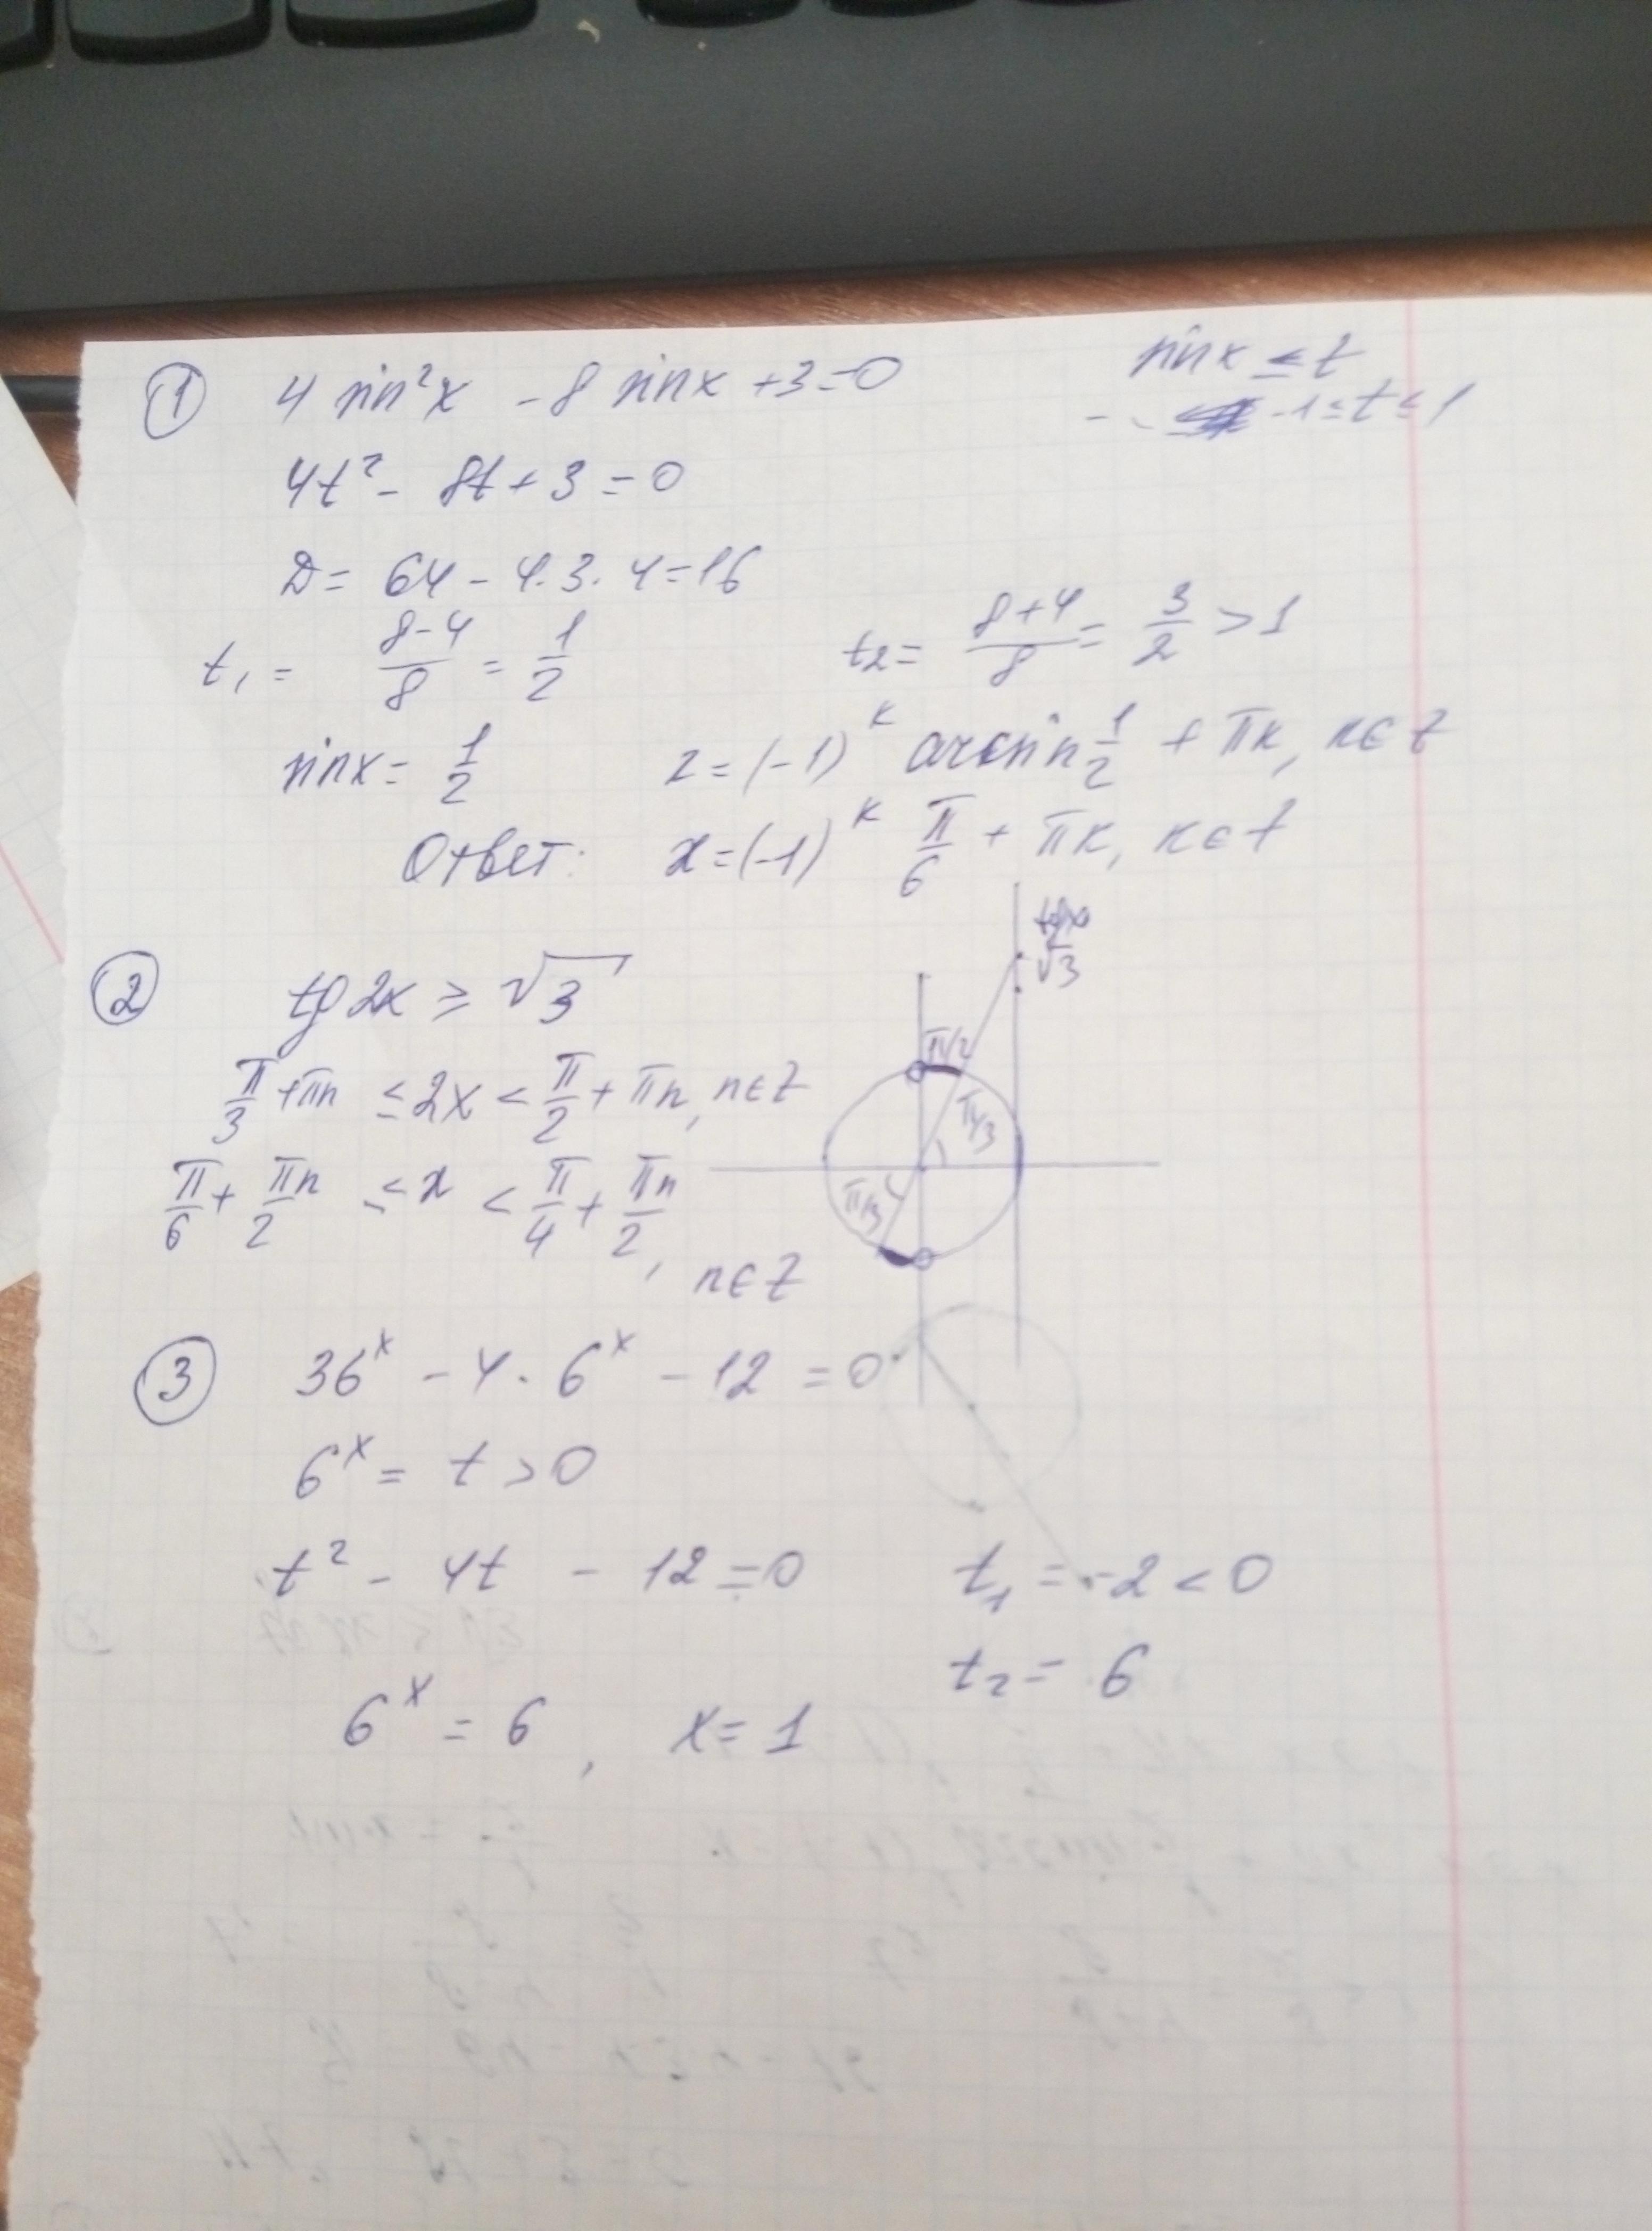 ① 4 sin²x - 8 sinx + 3 = 0
sinx ≤ t
-1 ≤ t ≤ 1
4t² - 8t + 3 = 0
D = 64 - 4·3·4 = 16
t₁ = (8-4)/8 = 1/2
t₂ = (8+4)/8 = 3/2 > 1
sinx = 1/2
x = (-1)^k arcsin 1/2 + πk, k∈Z
Ответ: x = (-1)^k π/6 + πk, k∈Z
tgx
√3
② tg 2x ≥ √3
π/2
π/3 + πn ≤ 2x < π/2 + πn, n∈Z
π/3
π/6 + πn/2 ≤ x < π/4 + πn/2, n∈Z
π/3
③ 36^x - 4·6^x - 12 = 0
6^x = t > 0
t² - 4t - 12 = 0
t₁ = -2 < 0
t₂ = 6
6^x = 6, x = 1